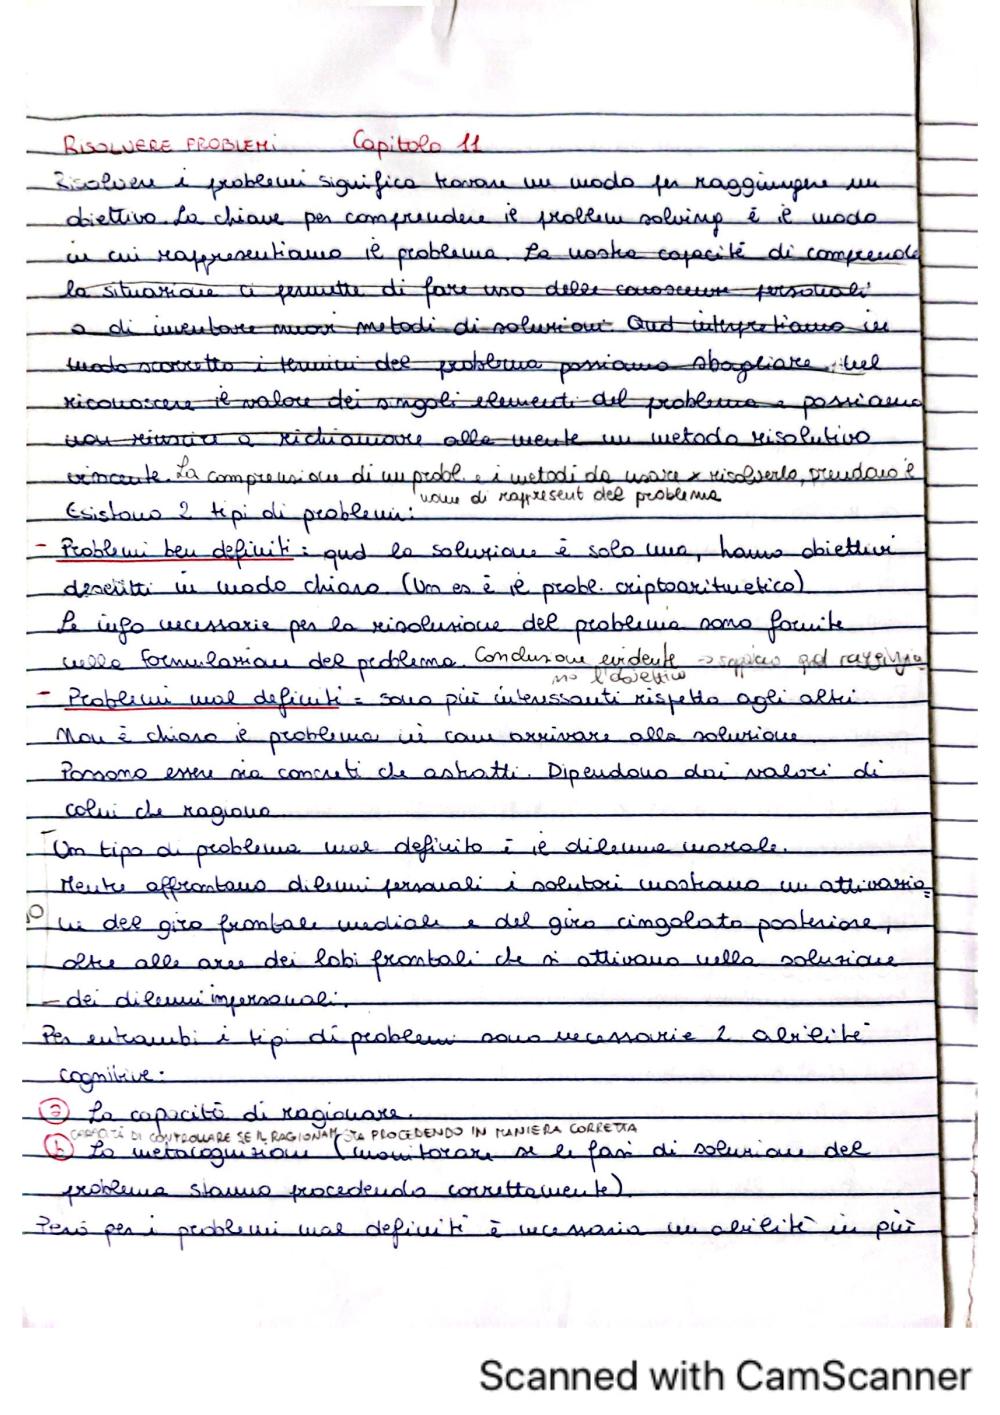 RISOLVERE PROBLEMI Capitolo 11
Risolvere i problemi significa trovare un modo per raggiungere un
obiettivo. La chiave per comprendere il problem solving è il modo
in cui rappresentiamo il problema. La nostra capacità di comprende
la situazione ci permette di fare uso delle conoscenze personali
o di inventare nuovi metodi di soluzioni. Qnd interpretiamo in
modo scorretto i termini del problema possiamo sbagliare nel
riconoscere il valore dei singoli elementi del problema e possiamo
non riuscire a richiamare alla mente un metodo risolutivo
vincente. La comprensione di un probl. e i metodi da usare x risolverlo, prendono il
nome di rappresent del problema
Esistono 2 tipi di problemi:
- Problemi ben definiti: qnd la soluzione è solo una, hanno obiettivi
descritti in modo chiaro (Un es è il probl. criptoaritmetico)
Le info necessarie per la risoluzione del problema sono fornite
nella formulazione del problema. Conclusione evidente → sappiao qnd raggiungia
mo l'obiettivo
- Problemi mal definiti = sono più interessanti rispetto agli altri.
Non è chiaro il problema nè come arrivare alla soluzione.
Possono essere sia concreti che astratti. Dipendono dai valori di
colui che ragiona
Un tipo di problema mal definito è il dilemma morale.
Mentre affrontano dilemmi personali i solutori mostrano un attivazio=
ne del giro frontale mediale e del giro cingolato posteriore,
oltre alle aree dei lobi frontali che si attivano nella soluzione
dei dilemmi impersonali.
Per entrambi i tipi di problemi sono necessarie 2 abilità
cognitive:
a La capacità di ragionare.
CAPACITÀ DI CONTROLLARE SE IL RAGIONAM STA PROCEDENDO IN MANIERA CORRETTA
b La metacognizione (monitorare se le fasi di soluzione del
problema stanno procedendo correttamente).
Però per i problemi mal definiti è necessaria un abilità in più
Scanned with CamScanner